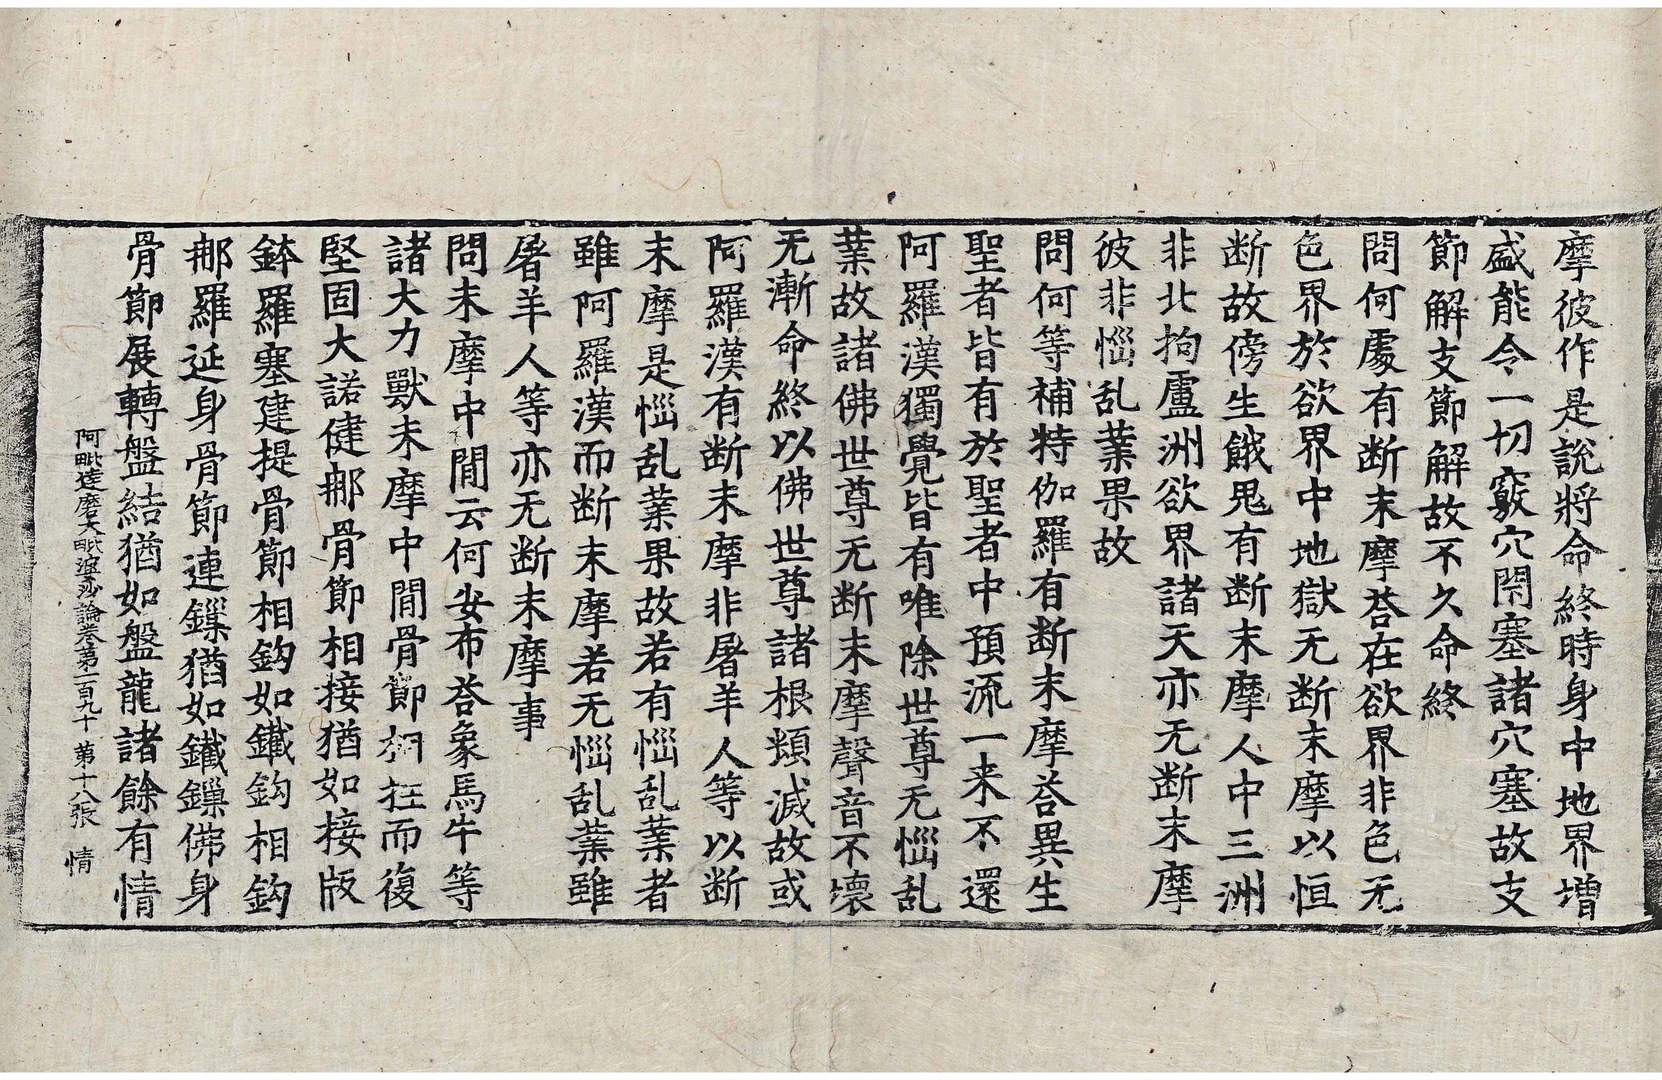 摩彼作是說將命終時身中地界增
盛能令一切竅穴閇塞諸穴塞故支
節解支節解故不久命終
問何處有断末摩荅在欲界非色无
色界於欲界中地獄无断末摩以恒
断故傍生餓鬼有断末摩人中三洲
非北拘盧洲欲界諸天亦无断末摩
彼非惱乱業果故
問何等補特伽羅有断末摩荅異生
聖者皆有於聖者中預流一来不還
阿羅漢獨覺皆有唯除世尊无惱乱
業故諸佛世尊无断末摩聲音不壊
无漸命終以佛世尊諸根頓滅故或
阿羅漢有断末摩非屠羊人等以断
末摩是惱乱業果故若有惱乱業者
雖阿羅漢而断末摩若无惱乱業雖
屠羊人等亦无断末摩事
問末摩中間云何安布荅象馬牛等
諸大力獸末摩中間骨節相拄而復
堅固大諾健那骨節相接猶如接版
鉢羅塞建提骨節相鈎如鐵鈎相鈎
那羅延身骨節連鏁猶如鐵鏁佛身
骨節展轉盤結猶如盤龍諸餘有情
阿毗達磨大毗婆沙論卷第一百九十 第十八張 情